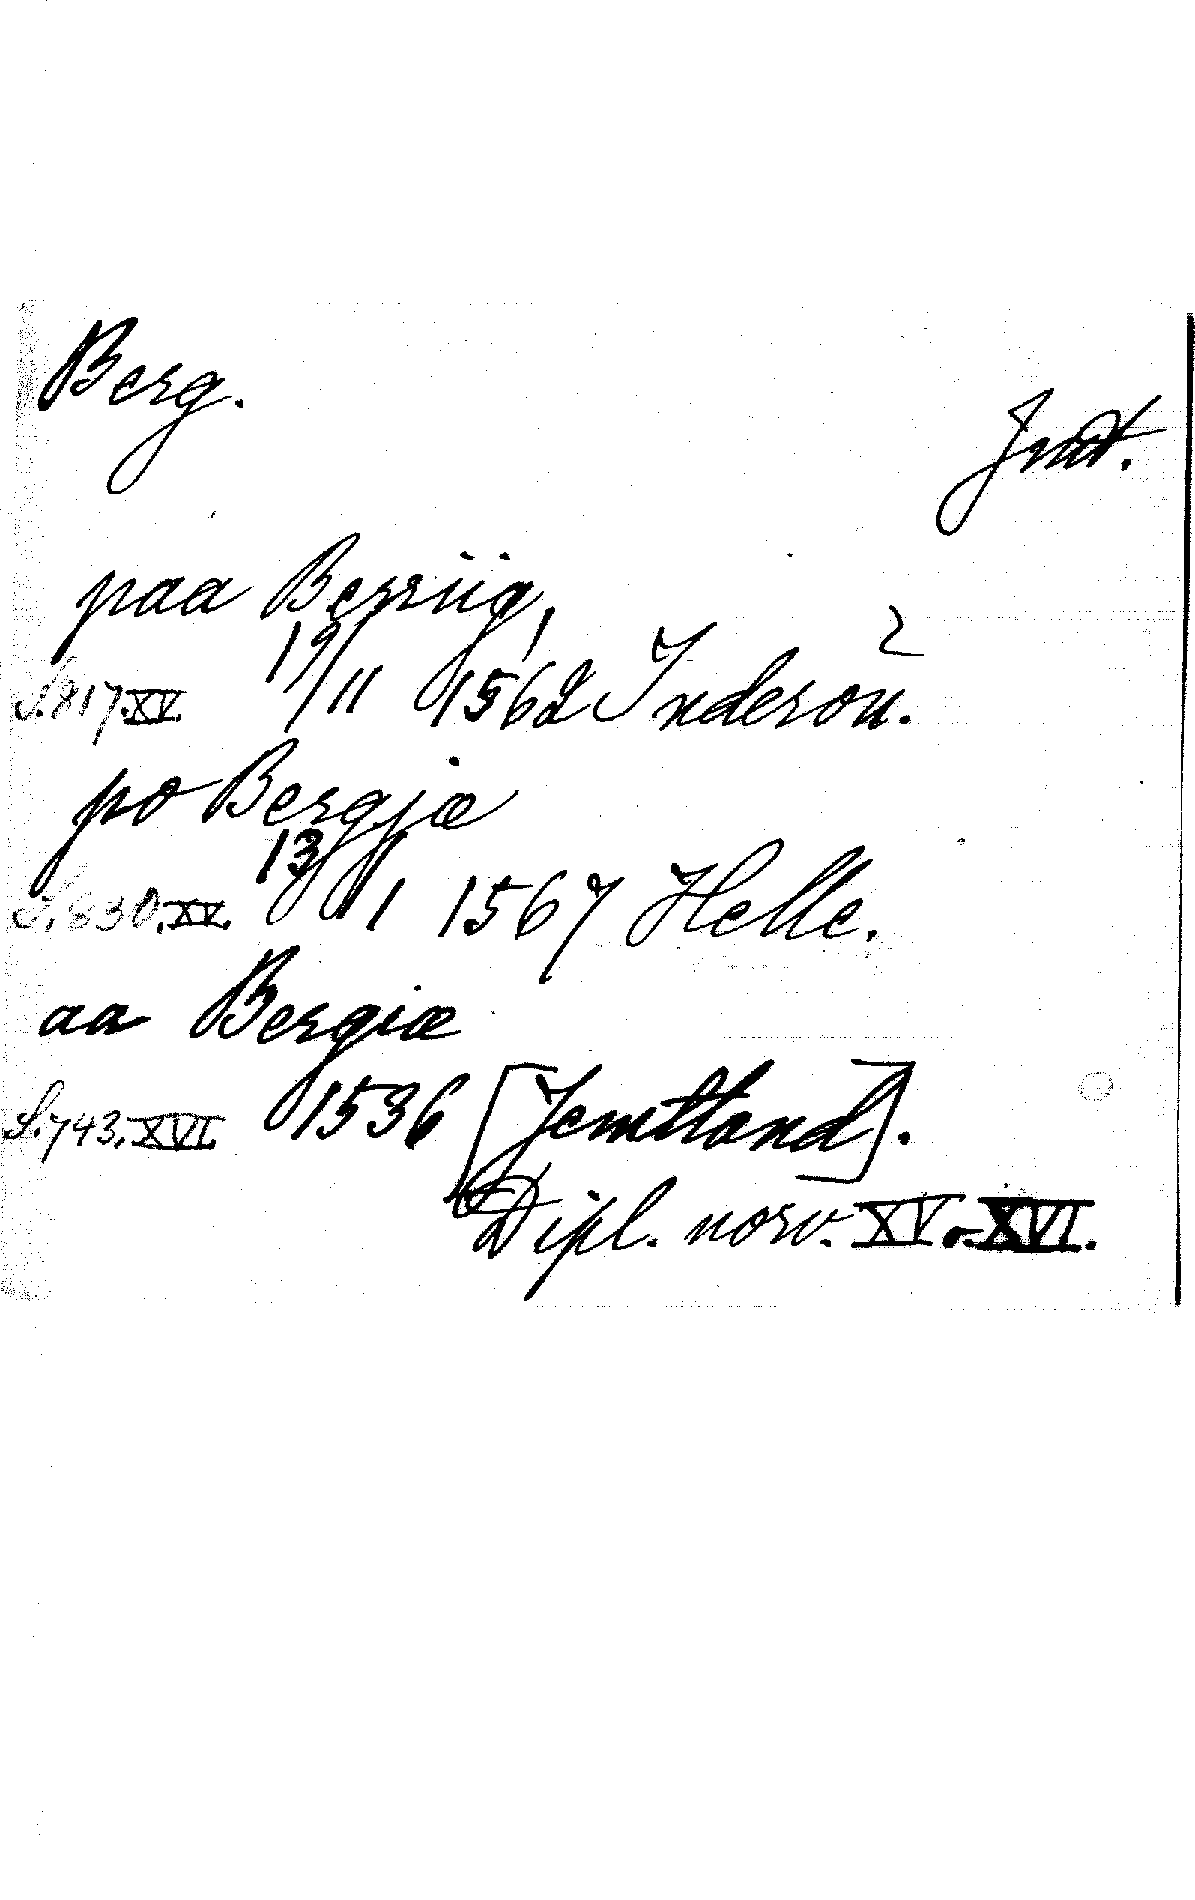 Berg.
Jmt.
paa Berriig,
S. 817. XV. 19/11 1562 Inderöu.
po Bergjæ
S. 830. XV. 13/1 1567 Helle.
aa Bergiæ
S. 743. XVI. 1536 [Jemtland].
Dipl. norv. XV. XVI.